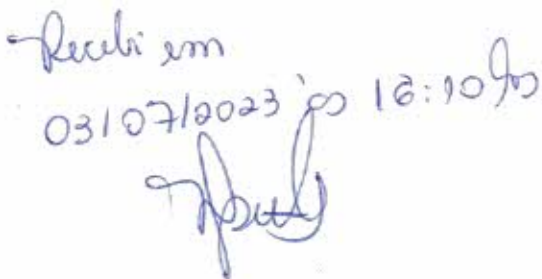 Recebi em
03/07/2023 às 16:10hs